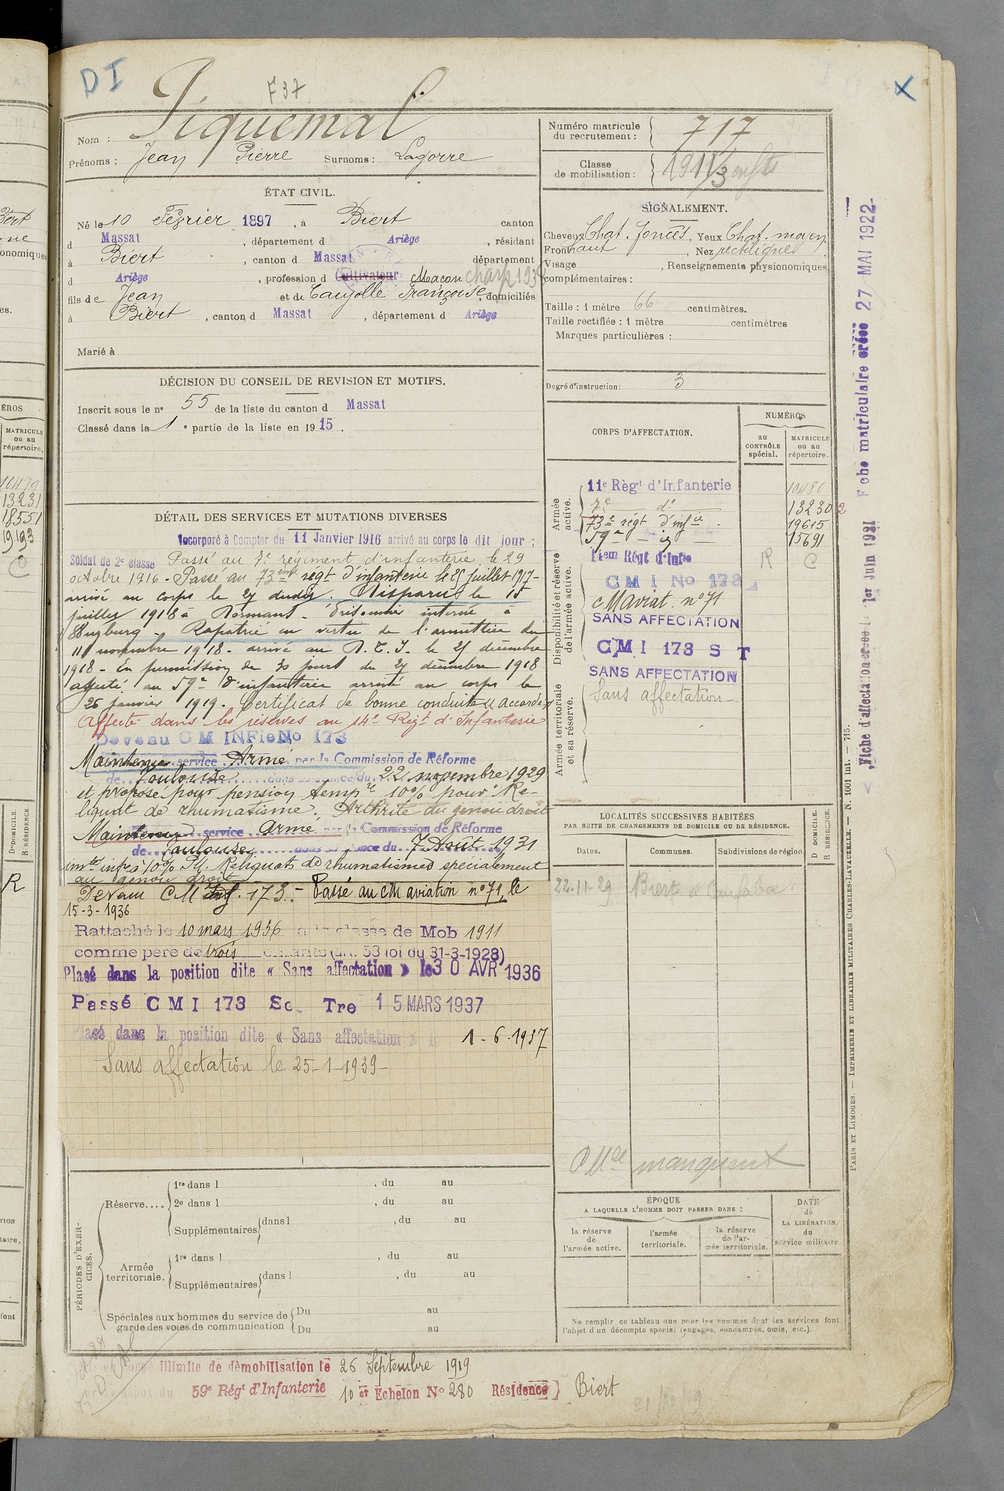 DI
F37
X
Nom : Piquemal
Prénoms : Jean Pierre Surnoms : Lagorre
Numéro matricule du recrutement : 717
Classe de mobilisation : 1911/3 enfts
ÉTAT CIVIL.
Né le 10 Février 1897, à Biert canton
d Massat, département d Ariège, résidant
à Biert, canton d Massat département
d Ariège, profession d Cultivateur Maçon
fils de Jean et de Caujolle Françoise, domiciliés
à Biert, canton d Massat, département d Ariège
Marié à
SIGNALEMENT.
Cheveux Chat. foncés, Yeux Chat. moyen
Front haut, Nez rectiligne
Visage , Renseignements physionomiques
complémentaires :
Taille : 1 mètre 66 centimètres.
Taille rectifiée : 1 mètre centimètres
Marques particulières :
Degré d'instruction : 3
DÉCISION DU CONSEIL DE REVISION ET MOTIFS.
Inscrit sous le n° 55 de la liste du canton d Massat
Classé dans la 1e partie de la liste en 1915.
DÉTAIL DES SERVICES ET MUTATIONS DIVERSES
Incorporé à Compter du 11 Janvier 1916 arrivé au corps le dit jour ;
Soldat de 2e classe Passé au 7e régiment d'infanterie le 29
octobre 1916 - Passé au 73ème régt d'infanterie le 25 juillet 1917 -
arrivé au corps le 27 dudit. Disparu le 15
juillet 1918 à Dormans. Prisonnier interné à
Rapatrié en vertu de l'armistice du
11 novembre 1918 - arrivé au D.T.I. le 25 décembre
1918 - En permission de 30 jours du 27 décembre 1918
affecté au 59e d'infanterie arrivé au corps le
25 janvier 1919. Certificat de bonne conduite "accordé"
Affecté dans les réserves au 14e Régt d'Infanterie
Devenu C M INFie No 173
Maintenu service Armé par la Commission de Réforme
de Toulouse dans sa séance du 22 novembre 1929
et proposé pour pension tempre 10% pour Re-
liquat de rhumatisme. Arthrite du genou droit
Maintenu service armé par la Commission de Réforme
de Toulouse dans sa séance du 7 Août 1931
inf à 10% Reliquats de rhumatismes spécialement
au genou droit
Devenu CM Inf. 173. - Passé au CM aviation n° 71, le
15-3-1936
Rattaché le 10 mars 1936 à la classe de Mob 1911
comme père de trois enfants (art. 53 loi du 31-3-1928)
Placé dans la position dite « Sans affectation » le 30 AVR 1936
Passé C M I 173 Sc Tre 15 MARS 1937
Placé dans la position dite « Sans affectation » le 1-6-1937
Sans affectation le 25-1-1939-
CORPS D'AFFECTATION.
NUMÉROS
au CONTRÔLE spécial.
MATRICULE ou au répertoire.
Armée active.
11e Règt d'Infanterie 10480
7e do 13230
73e régt d'infie 19615
59e 15691
Disponibilité et réserve de l'armée active.
14em Régt d'Infie R C
C M I No 173
CM Aviat. n° 71
SANS AFFECTATION
CMI 173 S T
SANS AFFECTATION
Armée territoriale et sa réserve.
Sans affectation
LOCALITÉS SUCCESSIVES HABITÉES
PAR SUITE DE CHANGEMENTS DE DOMICILE OU DE RÉSIDENCE.
Dates. Communes. Subdivisions de région D DOMICILE. R RÉSIDENCE.
22.11.29 Biert
manquent
ÉPOQUE
A LAQUELLE L'HOMME DOIT PASSER DANS :
la réserve de l'armée active. l'armée territoriale. la réserve de l'armée territoriale.
DATE de LA LIBÉRATION du service militaire
Ne remplir ce tableau que pour les hommes dont les services font
l'objet d'un décompte spécial (engagés, condamnés, omis, etc.).
PÉRIODES D'EXERCICES.
Réserve.... 1re dans l , du au
2e dans l , du au
Supplémentaires dans l , du au
Armée territoriale. 1re dans l , du au
Supplémentaires dans l , du au
Spéciales aux hommes du service de garde des voies de communication Du au
Du au
illimité de démobilisation le 26 Septembre 1919
59e Régt d'Infanterie 10 er Échelon No 280 Résidence } Biert
Fiche d'affectation créée le 1er Juin 1921 Fiche matriculaire créée 27 MAI 1922
PARIS ET LIMOGES. — IMPRIMERIE ET LIBRAIRIE MILITAIRES CHARLES-LAVAUZELLE. — N. 1001 Int. — 715.